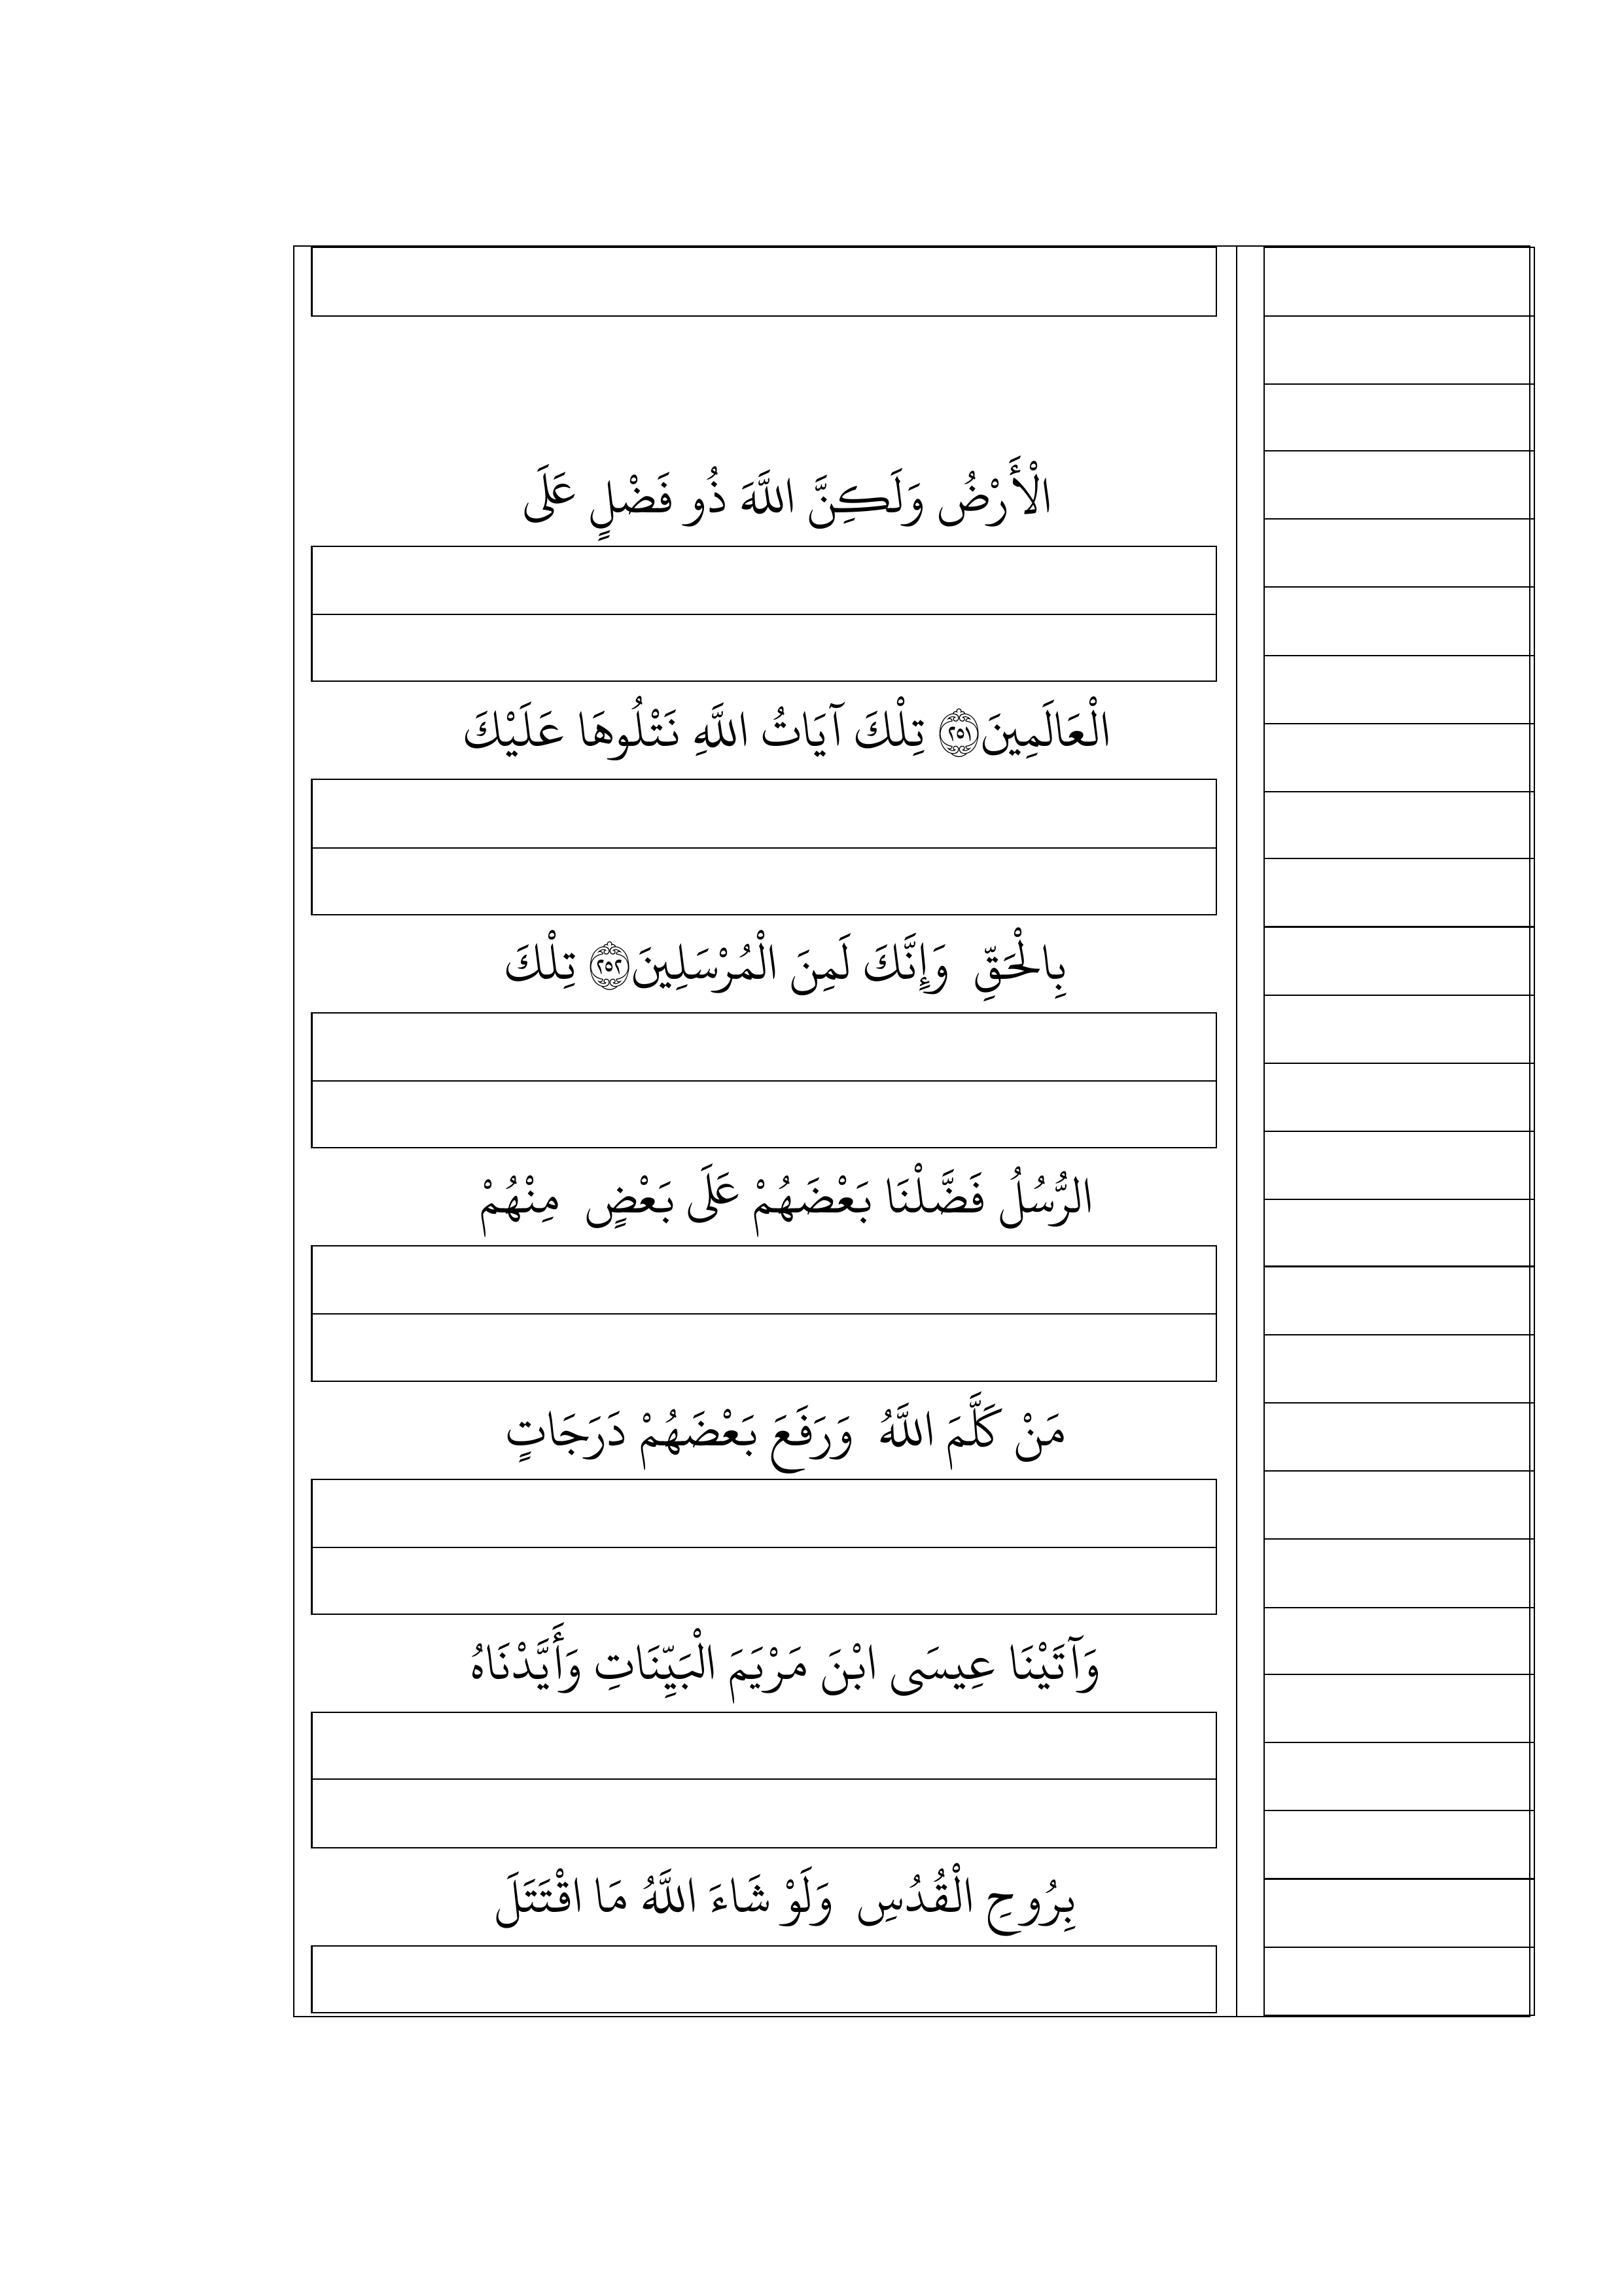 الْأَرْضُ وَلَكِنَّ اللَّهَ ذُو فَضْلٍ عَلَى
الْعَالَمِينَ ﴿٢٥١﴾ تِلْكَ آيَاتُ اللَّهِ نَتْلُوهَا عَلَيْكَ
بِالْحَقِّ وَإِنَّكَ لَمِنَ الْمُرْسَلِينَ ﴿٢٥٢﴾ تِلْكَ
الرُّسُلُ فَضَّلْنَا بَعْضَهُمْ عَلَى بَعْضٍ مِنْهُمْ
مَنْ كَلَّمَ اللَّهُ وَرَفَعَ بَعْضَهُمْ دَرَجَاتٍ
وَآتَيْنَا عِيسَى ابْنَ مَرْيَمَ الْبَيِّنَاتِ وَأَيَّدْنَاهُ
بِرُوحِ الْقُدُسِ وَلَوْ شَاءَ اللَّهُ مَا اقْتَتَلَ